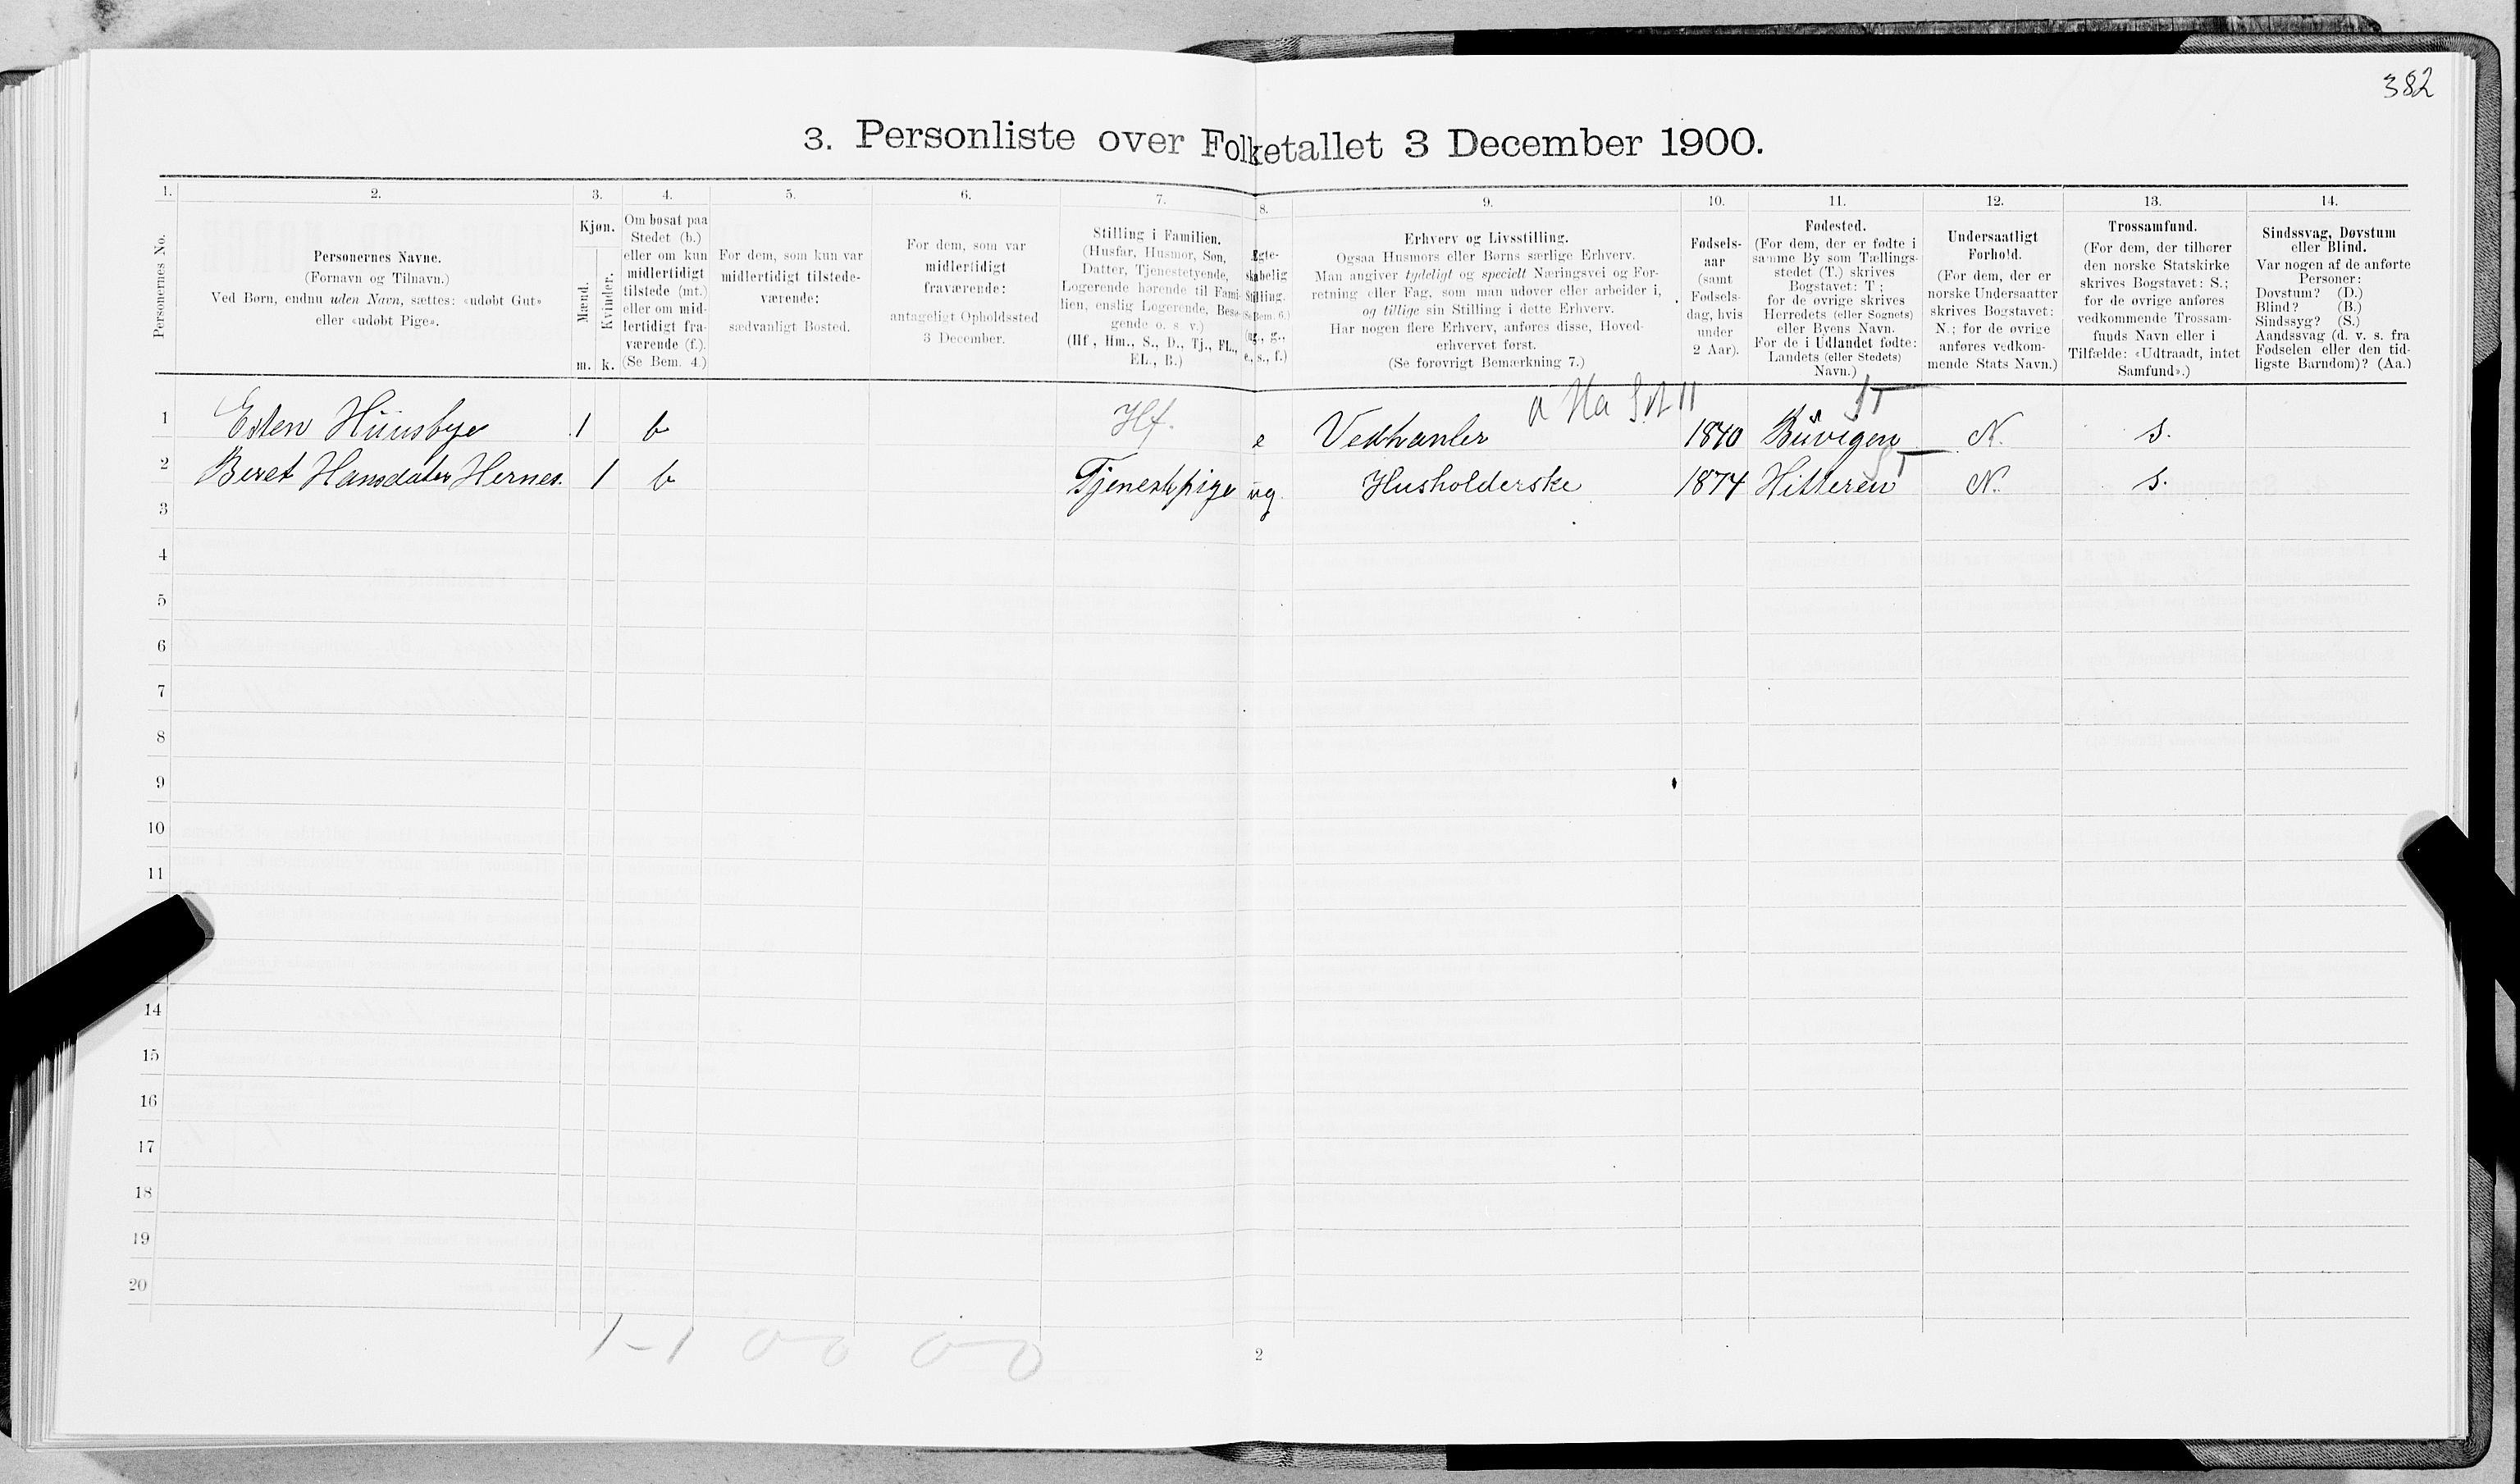 382
3. Personliste over Folketallet 3 December 1900.
1. 2. 3. 4. 5. 6. 7. 8. 9. 10. 11. 12. 13. 14.
Personernes No.
Personernes Navne.
(Fornavn og Tilnavn.)
Ved Børn, endnu uden Navn, sættes: «udøbt Gut»
eller «udøbt Pige».
Kjøn.
Mænd.
Kvinder.
m. k.
Om bosat paa
Stedet (b.)
eller om kun
midlertidigt
tilstede (mt.)
eller om mid-
lertidigt fra-
værende (f.).
(Se Bem. 4.)
For dem, som kun var
midlertidigt tilstede-
værende:
sædvanligt Bosted.
For dem, som var
midlertidigt
fraværende:
antageligt Opholdssted
3 December.
Stilling i Familien.
(Husfar, Husmor, Søn,
Datter, Tjenestetyende,
Logerende hørende til Fami-
lien, enslig Logerende, Besø-
gende o. s. v.)
(Hf., Hm., S., D., Tj., FL.,
EL., B.)
Ægte-
skabelig
Stilling.
(Se Bem. 6.)
(ug., g.,
e., s., f.)
Erhverv og Livsstilling.
Ogsaa Husmors eller Børns særlige Erhverv.
Man angiver tydeligt og specielt Næringsvei og For-
retning eller Fag, som man udøver eller arbeider i,
og tillige sin Stilling i dette Erhverv.
Har nogen flere Erhverv, anføres disse, Hoved-
erhvervet først.
(Se forøvrigt Bemærkning 7.)
Fødsels-
aar
(samt
Fødsels-
dag, hvis
under
2 Aar).
Fødested.
(For dem, der er fødte i
samme By som Tællings-
stedet (T.) skrives
Bogstavet: T;
for de øvrige skrives
Herredets (eller Sognets)
eller Byens Navn.
For de i Udlandet fødte:
Landets (eller Stedets)
Navn.)
Undersaatligt
Forhold.
(For dem, der er
norske Undersaatter
skrives Bogstavet:
N.; for de øvrige
anføres vedkom-
mende Stats Navn.)
Trossamfund.
(For dem, der tilhører
den norske Statskirke
skrives Bogstavet: S.;
for de øvrige anføres
vedkommende Trossam-
funds Navn eller i
Tilfælde: «Udtraadt, intet
Samfund».)
Sindssvag, Døvstum
eller Blind.
Var nogen af de anførte
Personer:
Døvstum? (D.)
Blind? (B.)
Sindssyg? (S.)
Aandssvag (d. v. s. fra
Fødselen eller den tid-
ligste Barndom)? (Aa.)
ST
1 Esten Hüüsbye 1 b Hf. e Vedhanler 1840 Büvigen N. S.
ST
2 Beret Hansdater Hernes. 1 b Tjenestpige ug. Husholderske 1874 Hitteren N. S.
3
4
5
6
7
8
9
10
11
14
15
16
17
18
19
20
1-1 0-0 0-0
2